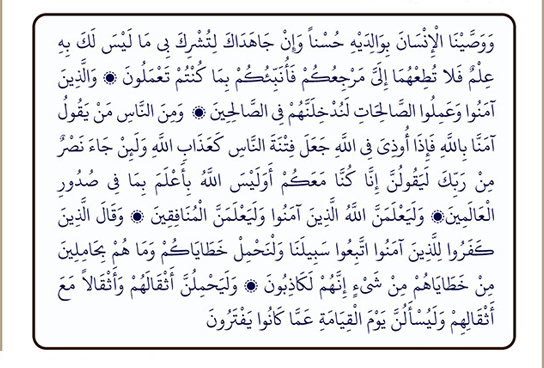 وَوَصَّيْنَا الْإِنْسَانَ بِوَالِدَيْهِ حُسْناً وَإِنْ جَاهَدَاكَ لِتُشْرِكَ بِي مَا لَيْسَ لَكَ بِهِ
عِلْمٌ فَلا تُطِعْهُمَا إِلَيَّ مَرْجِعُكُمْ فَأُنَبِّئُكُمْ بِمَا كُنْتُمْ تَعْمَلُونَ ۞ وَالَّذِينَ
آمَنُوا وَعَمِلُوا الصَّالِحَاتِ لَنُدْخِلَنَّهُمْ فِي الصَّالِحِينَ ۞ وَمِنَ النَّاسِ مَنْ يَقُولُ
آمَنَّا بِاللَّهِ فَإِذَا أُوذِيَ فِي اللَّهِ جَعَلَ فِتْنَةَ النَّاسِ كَعَذَابِ اللَّهِ وَلَئِنْ جَاءَ نَصْرٌ
مِنْ رَبِّكَ لَيَقُولُنَّ إِنَّا كُنَّا مَعَكُمْ أَوَلَيْسَ اللَّهُ بِأَعْلَمَ بِمَا فِي صُدُورِ
الْعَالَمِينَ۞ وَلَيَعْلَمَنَّ اللَّهُ الَّذِينَ آمَنُوا وَلَيَعْلَمَنَّ الْمُنَافِقِينَ ۞ وَقَالَ الَّذِينَ
كَفَرُوا لِلَّذِينَ آمَنُوا اتَّبِعُوا سَبِيلَنَا وَلْنَحْمِلْ خَطَايَاكُمْ وَمَا هُمْ بِحَامِلِينَ
مِنْ خَطَايَاهُمْ مِنْ شَيْءٍ إِنَّهُمْ لَكَاذِبُونَ ۞ وَلَيَحْمِلُنَّ أَثْقَالَهُمْ وَأَثْقَالاً مَعَ
أَثْقَالِهِمْ وَلَيُسْأَلُنَّ يَوْمَ الْقِيَامَةِ عَمَّا كَانُوا يَفْتَرُونَ